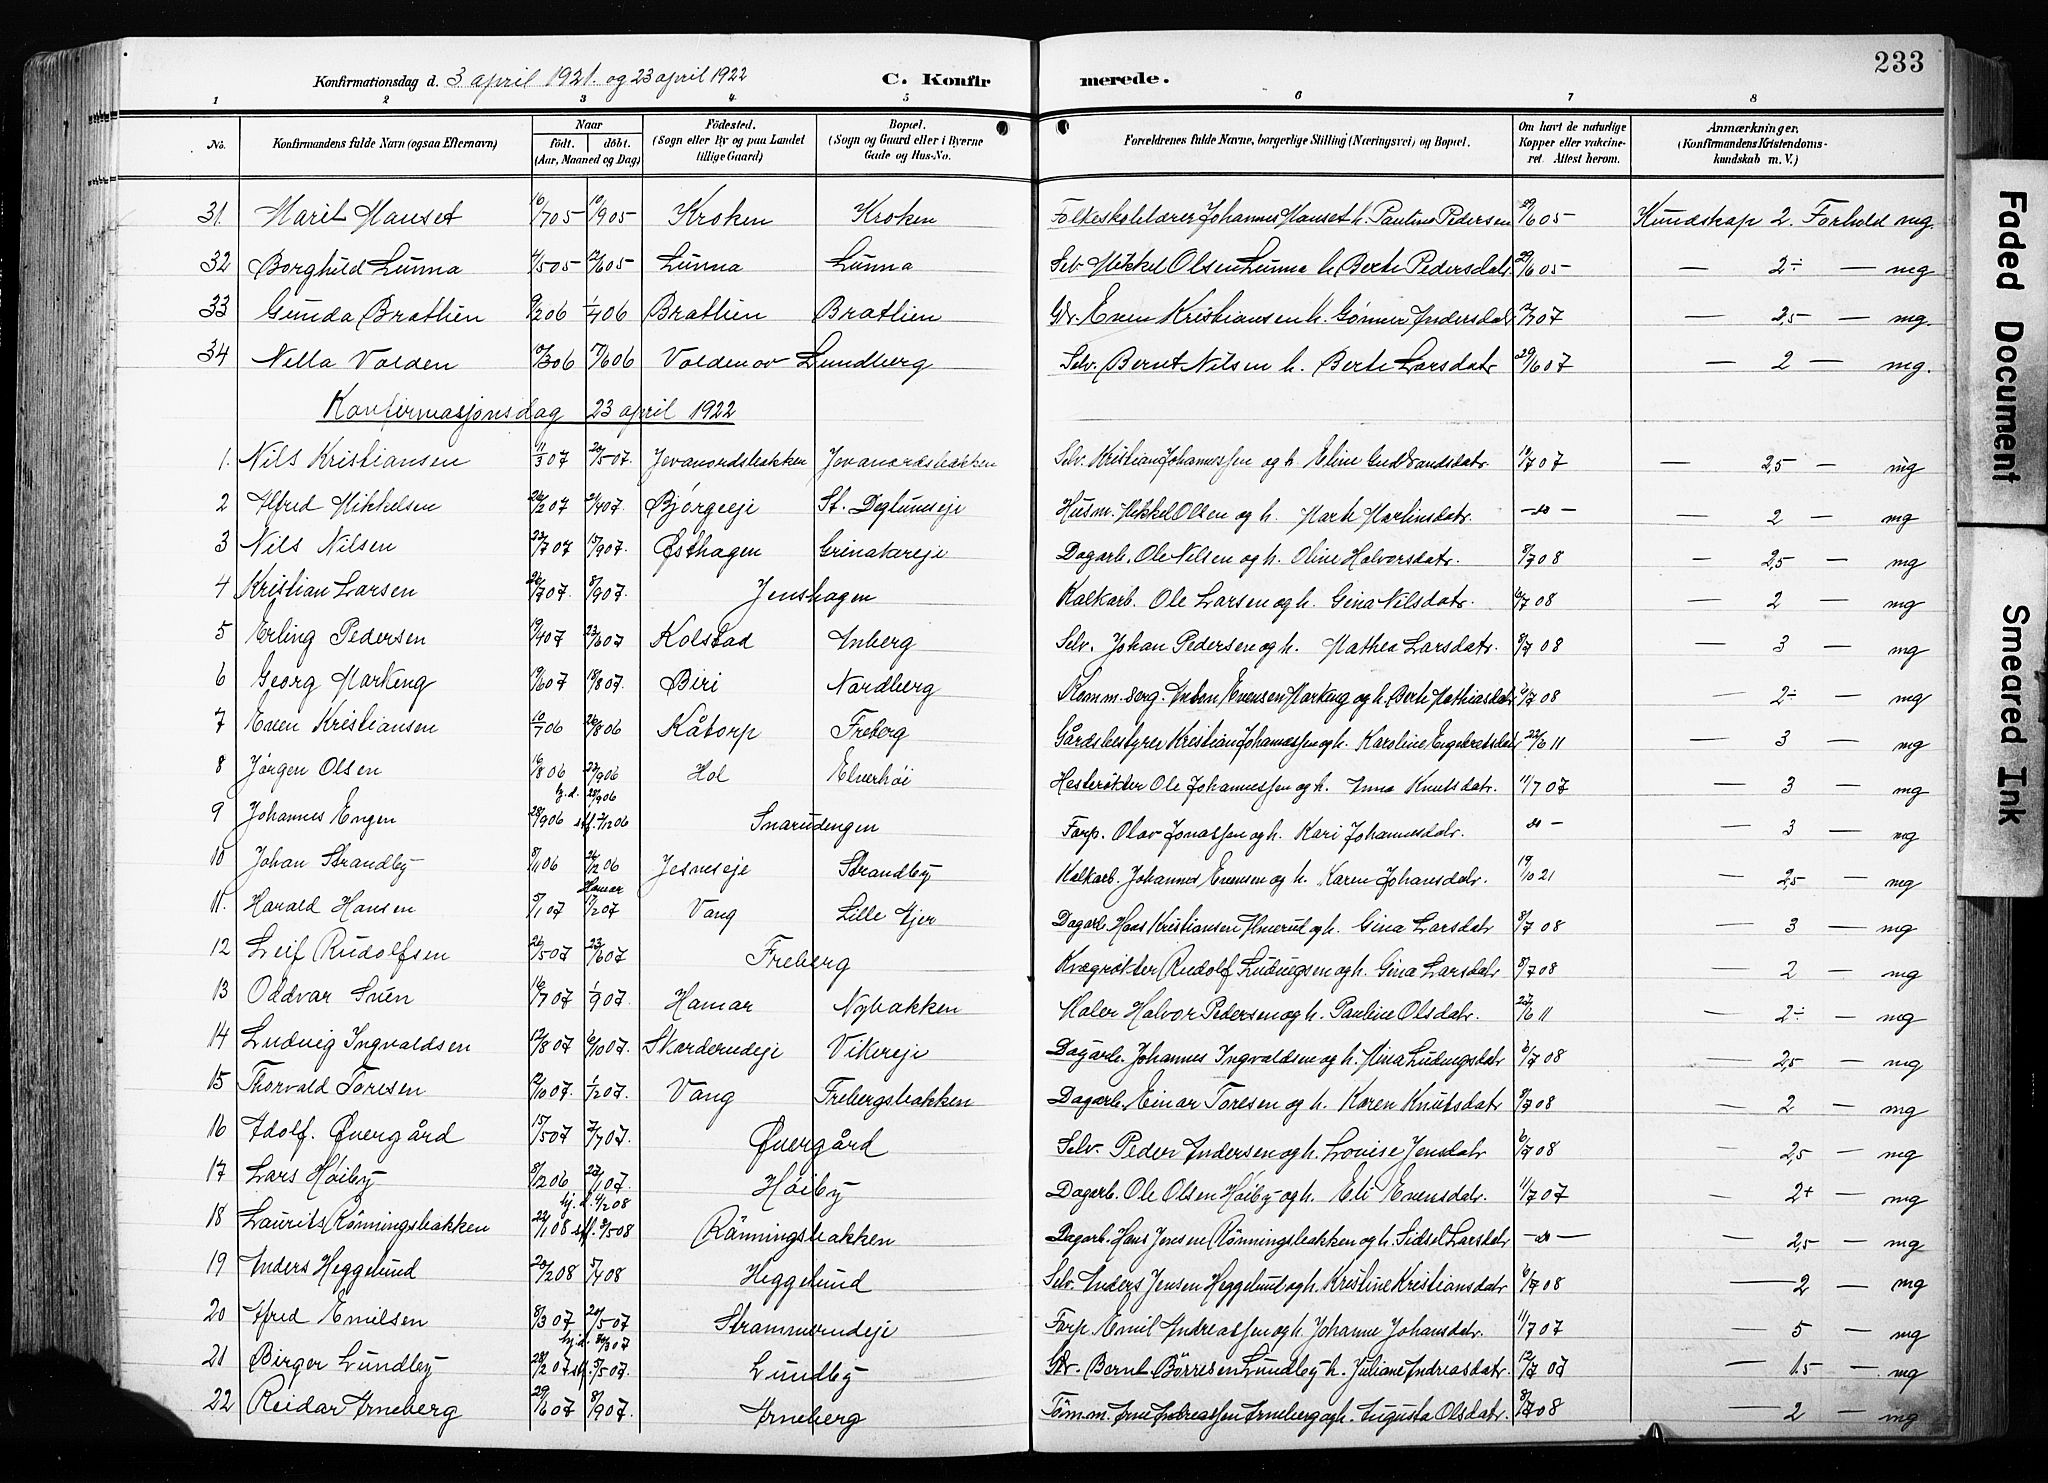 233
Konfirmationsdag d. 3 april 1921. og 23 april 1922 C. Konfirmerede.
1 2 3 4 5 6 7 8
No. Konfirmandens fulde Navn (ogsaa Efternavn) Naar født. døbt. (Aar, Maaned og Dag) Fødested. (Sogn eller By og paa Landet tillige Gaard) Bopæl. (Sogn og Gaard eller i Byerne Gade og Hus-No. Forældrenes fulde Navne, borgerlige Stilling (Næringsvei) og Bopæl. Om havt de naturlige Kopper eller vakcineret Attest herom. Anmærkninger. (Konfirmandens Kristendomskundskab m. V.)
31. Marit Hauset 16/7 05 10/9 05 Kroken Kroken Folkeskolelærer Johannes Hauset h. Pauline Pedersen 29/6 05 – Kundskap 2. Forhold mg.
32 Borghild Lunna 4/5 05 12/6 05 Lunna Lunna Selv. Mikkel Olsen Lunna h. Berte Pedersdatr. 29/6 05 – — 2÷ — mg
33 Gunda Bratlien 9/2 06 1/4 06 Bratlien Bratlien Gbr. Even Kristiansen h. Gønner Andersdatr 2/7 07 — 2,5 — mg.
34 Nella Volden 10/3 06 17/6 06 Volden ov Lundberg Selv. Bernt Nilsen h. Berte Larsdatr 29/6 07 — 2 — mg.
Konfirmasjonsdag 23 april 1922
1. Nils Kristiansen 11/3 07 20/5 07. Jevanordsbakken Jevanordsbakken Selv. Kristian Johannessen og h. Eline Gudbrandsdatr. 11/7 07 — 2,5 — mg
2 Alfred Mikkelsen 26/2 07 21/4 07. Bjørgeeje St. Deglumseje Husm. Mikkel Olsen og h. Marte Martinsdatr. – do – — 2 — mg
3 Nils Nilsen 22/7 07 15/9 07. Østhagen Grinakereje Dagarb. Ole Nilsen og h. Oline Halvorsdatr. 8/7 08 — 2,5 — mg
4 Kristian Larsen 26/7 07. 8/9 07. Jenshagen Kalkarb. Ole Larsen og h. Gina Nilsdatr. 6/7 08 — 2 — mg
5 Erling Pedersen 19/4 07 23/6 07 Kolstad Anberg Selv. Johan Pedersen og h. Mathea Larsdatr. 8/7 08 — 3 — mg
6 Georg Markeng 19/6 07 18/8 07. Biri Nordberg Komm. serg. Anton Evensen Markeng og h. Berte Mathiasdatr 6/7 08 — 2÷ — mg
7 Even Kristiansen 10/7 06 26/8 06 Kåtorp Freberg Gårdsbestyrer Kristian Johannessen og h. Karoline Engebretsdatr 22/6 11 — 3 — mg
8 Jørgen Olsen 16/8 06 23/9 06 Hol Elverhöi Hesterökter Ole Johannessen og h. Anna Knutsdatr. 11/7 07 — 3 — mg
hj. d. 28/9 06
9 Johannes Engen 28/9 06 stf. 2/12 06 Snarudengen Forp. Olav Jonassen og h. Kari Johannesdatr. do – — 3 — mg
10 Johan Strandby 8/11 06 26/12 06 Jesneseje Strandby Kalkarb. Johannes Evensen og h. Karen Johansdatr. 19/10 21 — 2,5 — mg
Hamar
11. Harald Hansen 5/1 07 17/2 07 Vang Lille Ajer Dagarb. Hans Kristiansen Almerud og h. Gina Larsdatr 8/7 08 — 3 — mg
12 Leif Rudolfsen 26/5 07 23/6 07 Freberg Kvægrökter Rudolf Ludvigsen og h. Gina Larsdatr 8/7 08 — 2 — mg
13 Oddvar Svén 16/7 07 1/9 07. Hamar Nybakken Maler Halvor Pedersen og h. Pauline Olsdatr. 27/6 11 — 2÷ — mg
14 Ludvig Ingvaldsen 12/8 07 6/10 07. Skarderudeje Vikereje Dagarb. Johannes Ingvaldsen og h. Mina Ludvigsdatr 6/7 08 — 2,5 — mg
15 Thorvald Toresen 12/10 07. 1/12 07. Vang Frebergsbakken Dagarb. Einar Toresen og h. Karen Knutsdatr 8/7 08 — 2 — mg
16 Adolf. Øvergård 15/5 07 7/7 07. Øvergård Selv. Peder Andersen og h. Lovise Jensdatr 6/7 08 — 2,5 — mg
17 Lars Høiby 8/12 06 27/1 07. Høiby Dagarb. Ole Olsen Høiby og h. Eli Evensdatr. 11/7 07 – 2+ — mg
hj. d. 4/2 08
18 Laurits Rönningsbakken 22/1 08 stf. 3/5 08 Rönningsbakken Dagarb. Hans Jensen Rönningsbakken og h. Sidsel Larsdatr – do – — 2,5 — mg
19 Anders Heggelund 20/2 08 5/4 08 Heggelund Selv. Anders Jensen Heggelund og h. Kristine Kristiansdatr 6/7 08 — 2 — mg
20 Alfred Emilsen 8/3 07 20/5 07 Strammerudeje Forp. Emil Andreassen og h. Johanne Johansdatr. 11/7 07 — 5 — mg
hj. d. 30/3 07
21 Birger Lundby 28/2 07 stf. 5/5 07. Lundby Gbr. Bernt Börresen Lundby h. Juliane Andreasdatr. 12/7 07 — 1.5 — mg
22 Reidar Arneberg 29/6 07 8/9 07. Arneberg Tömm. Arne Andreassen Arneberg og h. Augusta Olsdatr. 8/7 08 — 2 — mg
Faded Document
Smeared Ink